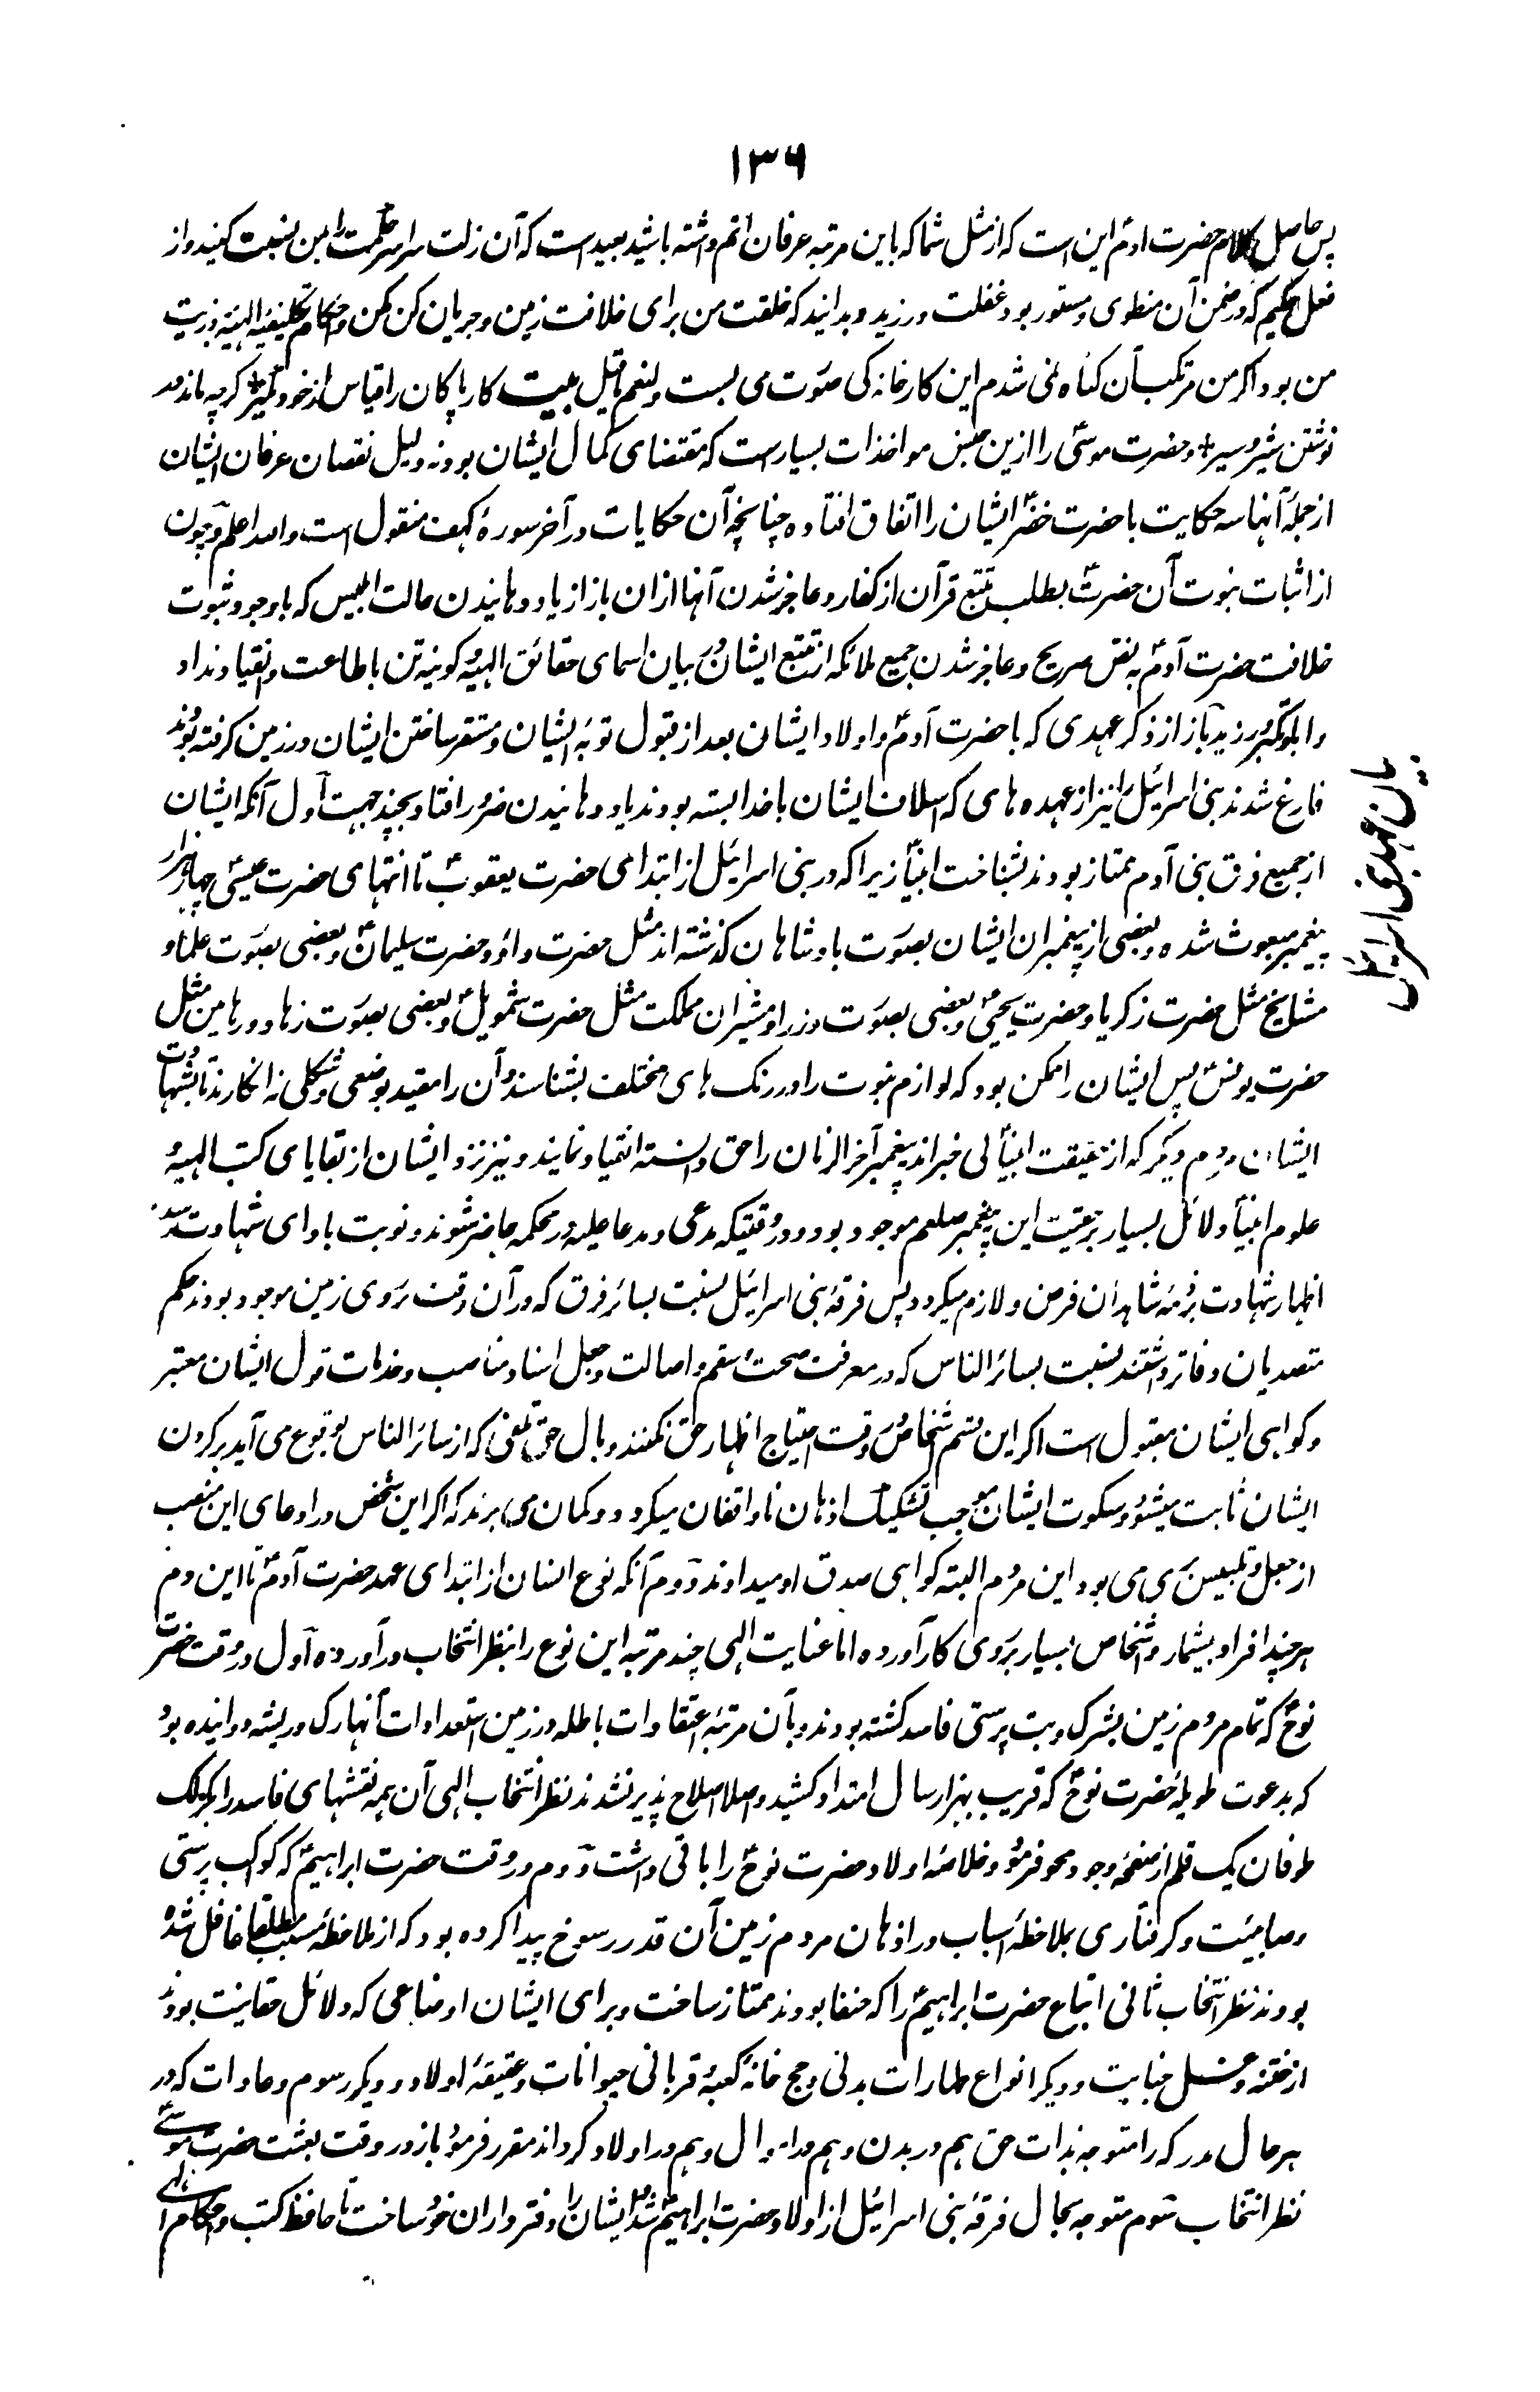 ١٣٦
پس حاصل کلام حضرت آدمؑ این است که از مثل شما که باین مرتبه عرفان اتم داشته باشید بعید است که آن زلت سراسر حکمت را بمن نسبت کنید و از
فعل حکیم که در ضمن آن منطوی و مستور بود غفلت ورزید و بدانید که خلقت من برای خلافت زمین و جریان کن مکن و احکام تکلیفیه الهیه در ذریت
من بود اگر من مرتکب آن گناه نمی شدم این کارخانه کی صورت می بست و لنعم ما قیل بیت کار پاکان را قیاس از خود مگیر + گرچه ماند در
نوشتن شیر و شیر + و حضرت موسیؑ را ازین جنس مواخذات بسیار است که مقتضای کمال ایشان بود نه دلیل نقصان عرفان ایشان
از جمله آنها سه حکایت با حضرت خضرؑ ایشان را اتفاق افتاده چنانچه آن حکایات در آخر سورهٔ کهف منقول است و الله اعلم و چون
از اثبات نبوت آن حضرتؐ بطلب تتبع قرآن از کفار و عاجز شدن آنها ازان باز از یاد دهانیدن حالت ابلیس که با وجود ثبوت
خلافت حضرت آدمؑ به نص صریح و عاجز شدن جمیع ملائکه از تتبع ایشان در بیان اسمای حقائق الهیه و کونیه تن باطاعت و انقیاد نداد
و ابا و تکبر ورزید باز از ذکر عهدی که با حضرت آدمؑ و اولاد ایشان بعد از قبول توبهٔ ایشان و مستقر ساختن ایشان در زمین گرفته بودند
فارغ شدند بنی اسرائیل را نیز از عهده های که اسلاف ایشان با خدا بسته بودند یاد دهانیدن ضرور افتاد بچند جهت اول آنکه ایشان
از جمیع فرق بنی آدم ممتاز بودند بشناخت انبیأ زیرا که در بنی اسرائیل از ابتدای حضرت یعقوبؑ تا انتهای حضرت عیسیؑ چهار هزار
پیغمبر مبعوث شده و بعضی از پیغمبران ایشان بصورت بادشاهان گذشته اند مثل حضرت داؤد و حضرت سلیمانؑ و بعضی بصورت علما و
مشایخ مثل حضرت زکریا و حضرت یحییؑ و بعضی بصورت وزرا و مشیران مملکت مثل حضرت شمویلؑ و بعضی بصورت زهاد و رهابین مثل
حضرت یونسؑ پس ایشان را ممکن بود که لوازم نبوت را در رنگ های مختلف بشناسند و آن را مقید بوضعی و شکلی نه انگارند تا بشهادت
ایشان مردم دیگر که از حقیقت انبیأ بی خبر اند پیغمبر آخر الزمان را حق دانسته انقیاد نمایند و نیز نزد ایشان از بقایای کتب الهیه و
علوم انبیأ دلائل بسیار بر حقیت این پیغمبر صلعم موجود بود و در وقتیکه مدعی و مدعا علیه در محکمه حاضر شوند و نوبت بادای شهادت رسد
اظهار شهادت بر ذمهٔ شاهدان فرض و لازم میگردد پس فرقهٔ بنی اسرائیل نسبت بسائر فرق که در آن وقت بر روی زمین موجود بودند حکم
متصدیان دفاتر داشتند نسبت بسائر الناس که در معرفت صحت و سقم و اصالت و جعل اسناد مناصب و خدمات قول ایشان معتبر
و گواهی ایشان مقبول است اگر این قسم اشخاص در وقت احتیاج اظهار حق نکنند وبال حق تلفی که از سائر الناس بوقوع می آید بر گردن
ایشان ثابت میشود و سکوت ایشان موجب تشکیک اذهان ناواقفان میگردد و گمان می برند که اگر این شخص در ادعای این منصب
از جعل و تلبیس بری می بود این مردم البته گواهی صدق او میدادند دوم آنکه نوع انسان از ابتدای عهد حضرت آدمؑ تا این دم
هر چند افراد بیشمار و اشخاص بسیار بر روی کار آورده اما عنایت الهی چند مرتبه این نوع را بنظر انتخاب در آورده اول در وقت حضرت
نوحؑ که تمام مردم زمین بشرک و بت پرستی فاسد گشته بودند و بآن مرتبهٔ اعتقادات باطله در زمین استعدادات آنها رگ و ریشه دوانیده بود
که بدعوت طویلهٔ حضرت نوحؑ که قریب بهزار سال امتداد کشید و اصلا اصلاح پذیر نشدند نظر انتخاب الهی آن همه نقشهای فاسد را بگزلک
طوفان یک قلم از صفحهٔ وجود محو فرمود و خلاصهٔ اولاد حضرت نوحؑ را باقی داشت دوم در وقت حضرت ابراهیمؑ که کواکب پرستی
و صابئیت و گرفتاری بملاحظهٔ اسباب در اذهان مردم زمین آن قدر رسوخ پیدا کرده بود که از ملاحظهٔ مسبب مطلقا غافل شده
بودند نظر انتخاب ثانی اتباع حضرت ابراهیمؑ را که حنفا بودند ممتاز ساخت و برای ایشان اوضاعی که دلائل حقانیت بودند
از ختنه و غسل جنابت و دیگر انواع طهارات بدنی و حج خانهٔ کعبه و قربانی حیوانات و عقیقهٔ اولاد و دیگر رسوم و عادات که در
هر حال مدرکه را متوجه بذات حق هم در بدن و هم در اموال و هم در اولاد گرداند مقرر فرمود باز در وقت بعثت حضرت موسیؑ
نظر انتخاب سوم متوجه بحال فرقهٔ بنی اسرائیل از اولاد حضرت ابراهیمؑ شد و ایشان را دفترداران خود ساخت تا حافظ کتب و احکام الهی
بیان عهد بنی اسرائیل